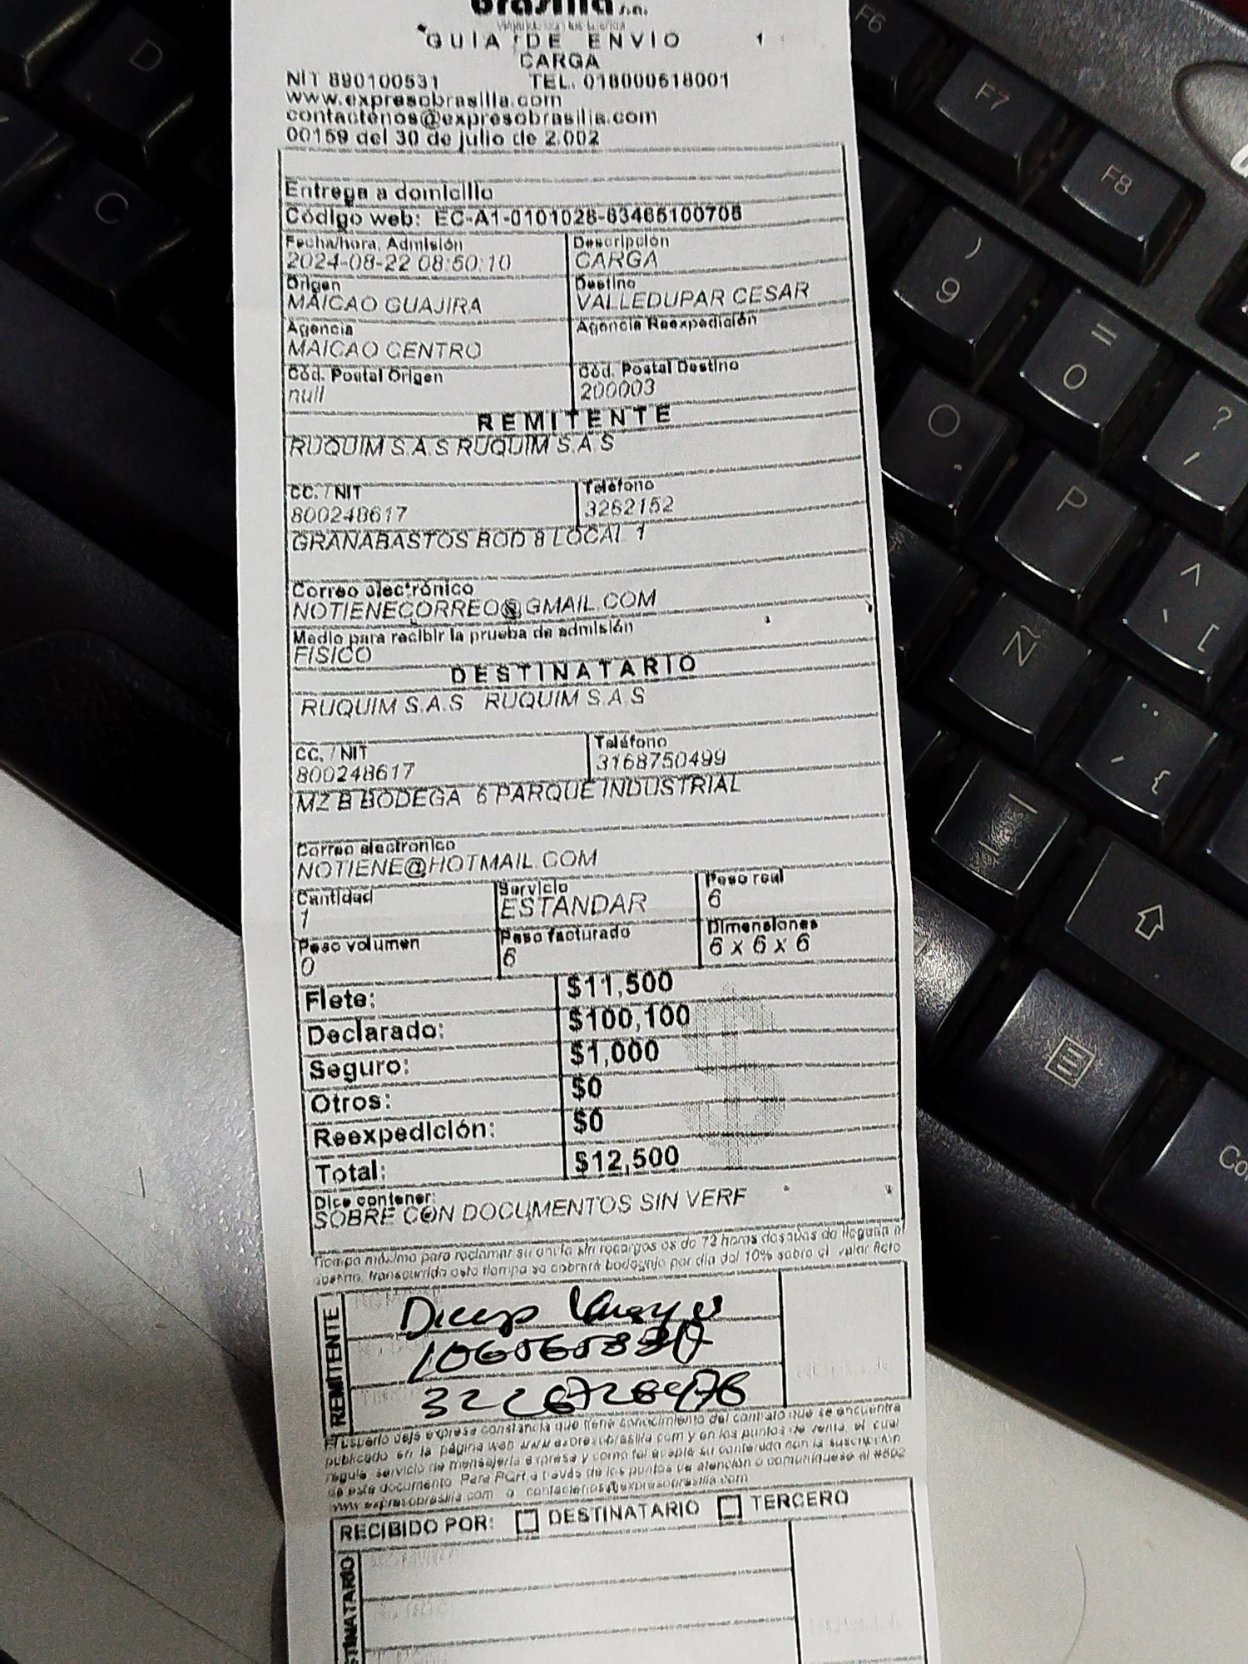 Brasilia S.A.
GUIA DE ENVIO 1
CARGA
NIT 890100531 TEL. 018000518001
www.expresobrasilia.com
contactenos@expresobrasilia.com
00159 del 30 de julio de 2.002
Entrega a domicilio
Código web: EC-A1-0101028-63465100705
Fecha/hora, Admisión Descripción
2024-08-22 08:50:10 CARGA
Origen Destino
MAICAO GUAJIRA VALLEDUPAR CESAR
Agencia Agencia Reexpedición
MAICAO CENTRO
Cód. Postal Origen Cód. Postal Destino
null 200003
REMITENTE
RUQUIM S.A.S RUQUIM S.A.S
CC. / NIT Teléfono
800248617 3262152
GRANABASTOS BOD 8 LOCAL 1
Correo electrónico
NOTIENECORREO@GMAIL.COM
Medio para recibir la prueba de admisión
FISICO
DESTINATARIO
RUQUIM S.A.S RUQUIM S.A.S
CC. / NIT Teléfono
800248617 3168750499
MZ B BODEGA 6 PARQUE INDUSTRIAL
Correo electrónico
NOTIENE@HOTMAIL.COM
Cantidad Servicio Peso real
1 ESTANDAR 6
Peso volumen Peso facturado Dimensiones
0 6 6 x 6 x 6
Flete: $11,500
Declarado: $100,100
Seguro: $1,000
Otros: $0
Reexpedición: $0
Total: $12,500
Dice contener:
SOBRE CON DOCUMENTOS SIN VERF
Tiempo máximo para reclamar su envío sin recargos es de 72 horas después de llegada al
destino, transcurrido este tiempo se cobrará bodegaje por día del 10% sobre el valor flete
REMITENTE
3226728478
El usuario deja expresa constancia que tiene conocimiento del contrato que se encuentra
publicado en la página web www.expresobrasilia.com y en los puntos de venta, el cual
regula servicio de mensajería expresa y como tal acepte su contenido con la suscripción
de este documento. Para PQR a través de los puntos de atención o comuníquese al #502
www.expresobrasilia.com o contactenos@expresobrasilia.com
RECIBIDO POR: DESTINATARIO TERCERO
STINATARIO
D
C
F6
F7
F8
) 9
= 0
? '
O
P
^ ` [
Ñ
¨ ´ {
_ -
Co